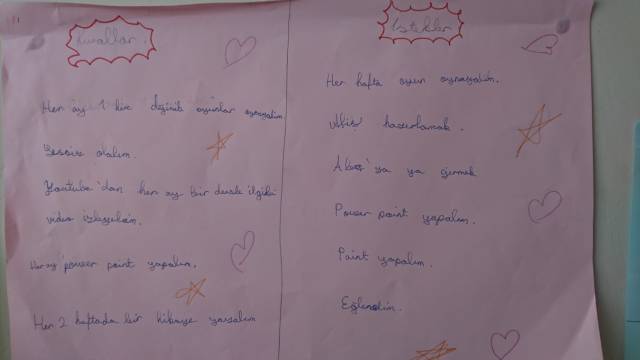 Kurallar
Her ay 1 kere değişik oyunlar oynayalım
Sessiz olalım.
Youtube'dan her ay bir dersle ilgili
video izleyelim.
Her ay power point yapalım.
Her 2 haftada bir hikaye yazalım
İstekler
Her hafta oyun oynayalım.
Afiş hazırlamak.
ya girmek
Power point yapalım.
Paint yapalım.
Eğlenelim.